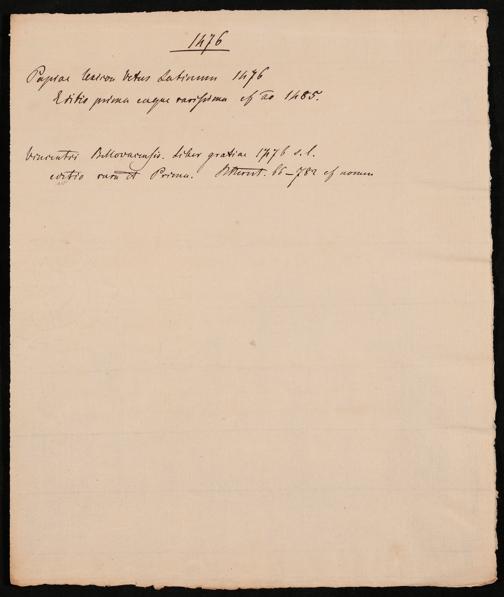 1476
Papiae Lexicon Vetus Latinum 1476
Editio prima eaque rarissima cf ao 1485.
Vincentii Bellovacensis. Liber gratiae 1476 s.l.
editio rara et Prima. 66–782 cf nomen